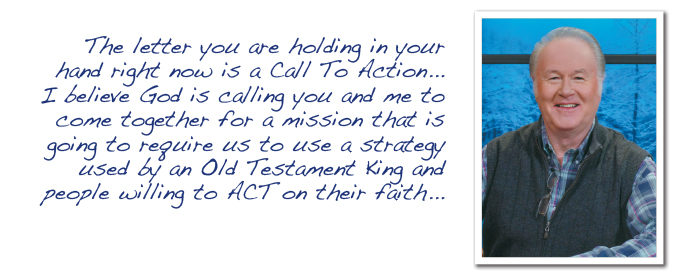 The letter you are holding in your
hand right now is a Call To Action...
I believe God is calling you and me to
come together for a mission that is
going to require us to use a strategy
used by an Old Testament King and
people willing to ACT on their faith...